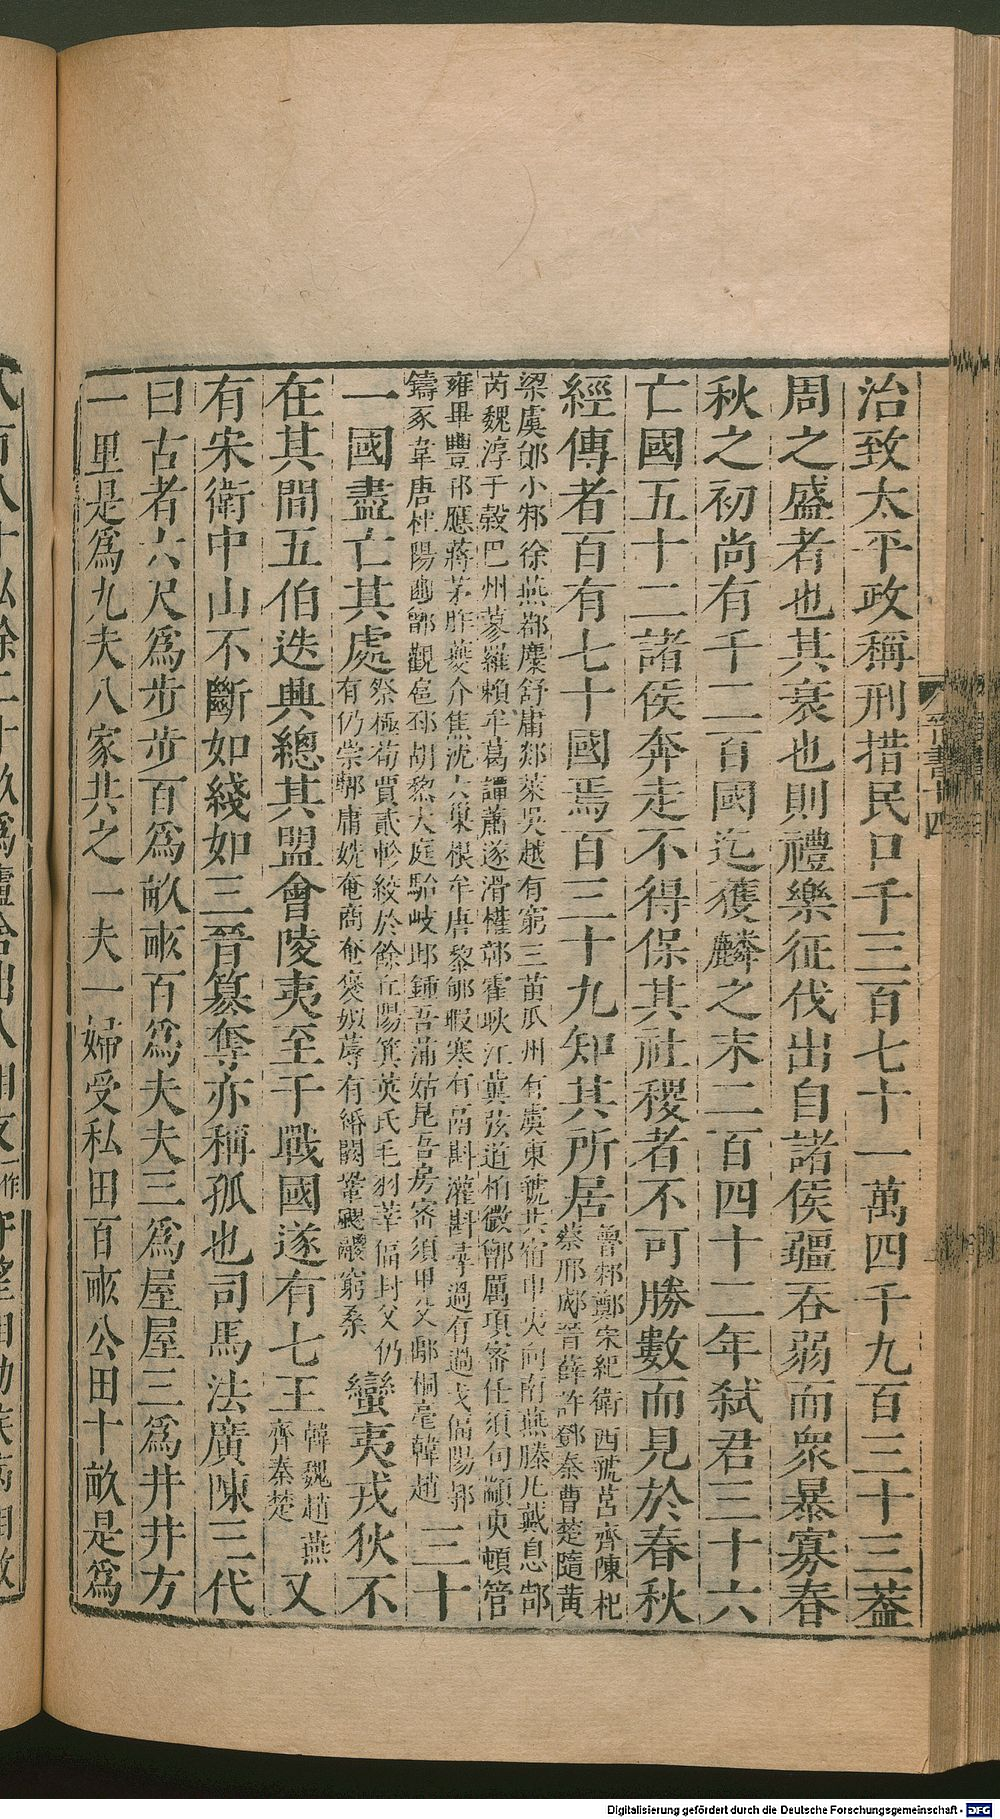 治致太平政稱刑措民口千三百七十一萬四千九百三十三蓋
周之盛者也其衰也則禮樂征伐出自諸侯疆吞弱而衆暴寡春
秋之初尚有千二百國迄獲麟之末二百四十二年弑君三十六
亡國五十二諸侯奔走不得保其社稷者不可勝數而見於春秋
經傳者百有七十國焉百三十九知其所居魯邾鄭宋紀衛西虢莒齊陳杞
蔡邢郕晉薛許鄧秦曹楚隨黄
梁虞邰小邾徐燕鄀麋舒庸郯萊吳越有窮三苗瓜州有虞東虢共宿申夷向南燕滕凡戴息郜
芮魏淳于穀巴州蓼羅賴牟葛譚蕭遂滑權鄣霍耿江冀弦道柏微鄫厲項密任須句顓臾頓管
雍畢豐邘應蔣茅胙夔介焦沈六巢根牟唐黎郇瑕寒有鬲斟灌斟尋過有過戈偪陽郭
鑄豕韋唐杜陽豳鄶觀扈邳胡黎大庭駘岐邶鍾吾蒲姑昆吾房密須甲父鄅桐亳韓趙三十
一國盡亡其處祭極荀賈貳軫絞於餘丘陽箕英氏毛羽莘偪封父仍
有仍崇鄟庸姺奄商奄褒姒蓐有緡闕鞏飂鬷窮桑蠻夷戎狄不
在其間五伯迭興總其盟會陵夷至于戰國遂有七王韓魏趙燕
齊秦楚又
有宋衛中山不斷如綫如三晉篡奪亦稱孤也司馬法廣陳三代
曰古者六尺爲步步百爲畝畝百爲夫夫三爲屋屋三爲井井方
一里是爲九夫八家共之一夫一婦受私田百畝公田十畝是爲
晉書十四